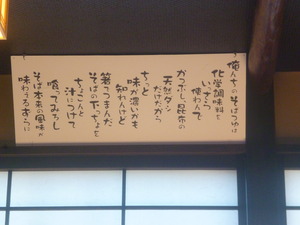 俺んちのそばつゆは
化学調味料を
いっさら
使わんで
かつぶし、昆布の
天然ダシ
だけだから
ちっと
味が濃いかも
知れんけど
箸でつまんだ
そばの下ちょを
ちょこんと
汁につけて
喰ってみろし
そば本来の風味が
味わうるらに